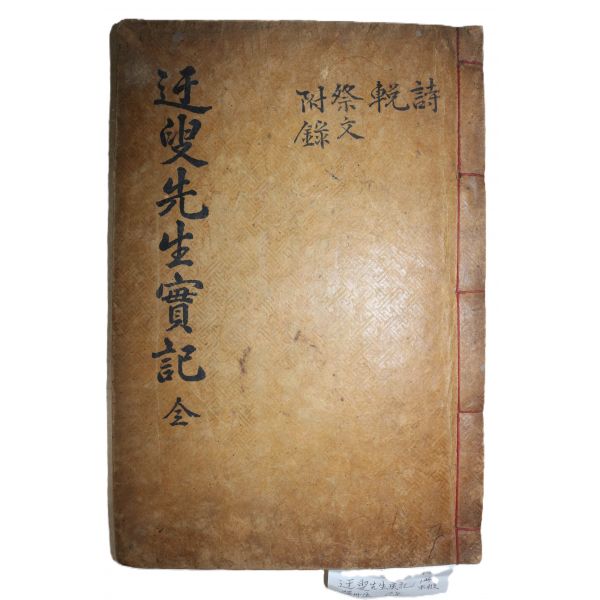 詩
輓
祭文
附錄
迂叟先生實記 全
迂叟先生实記